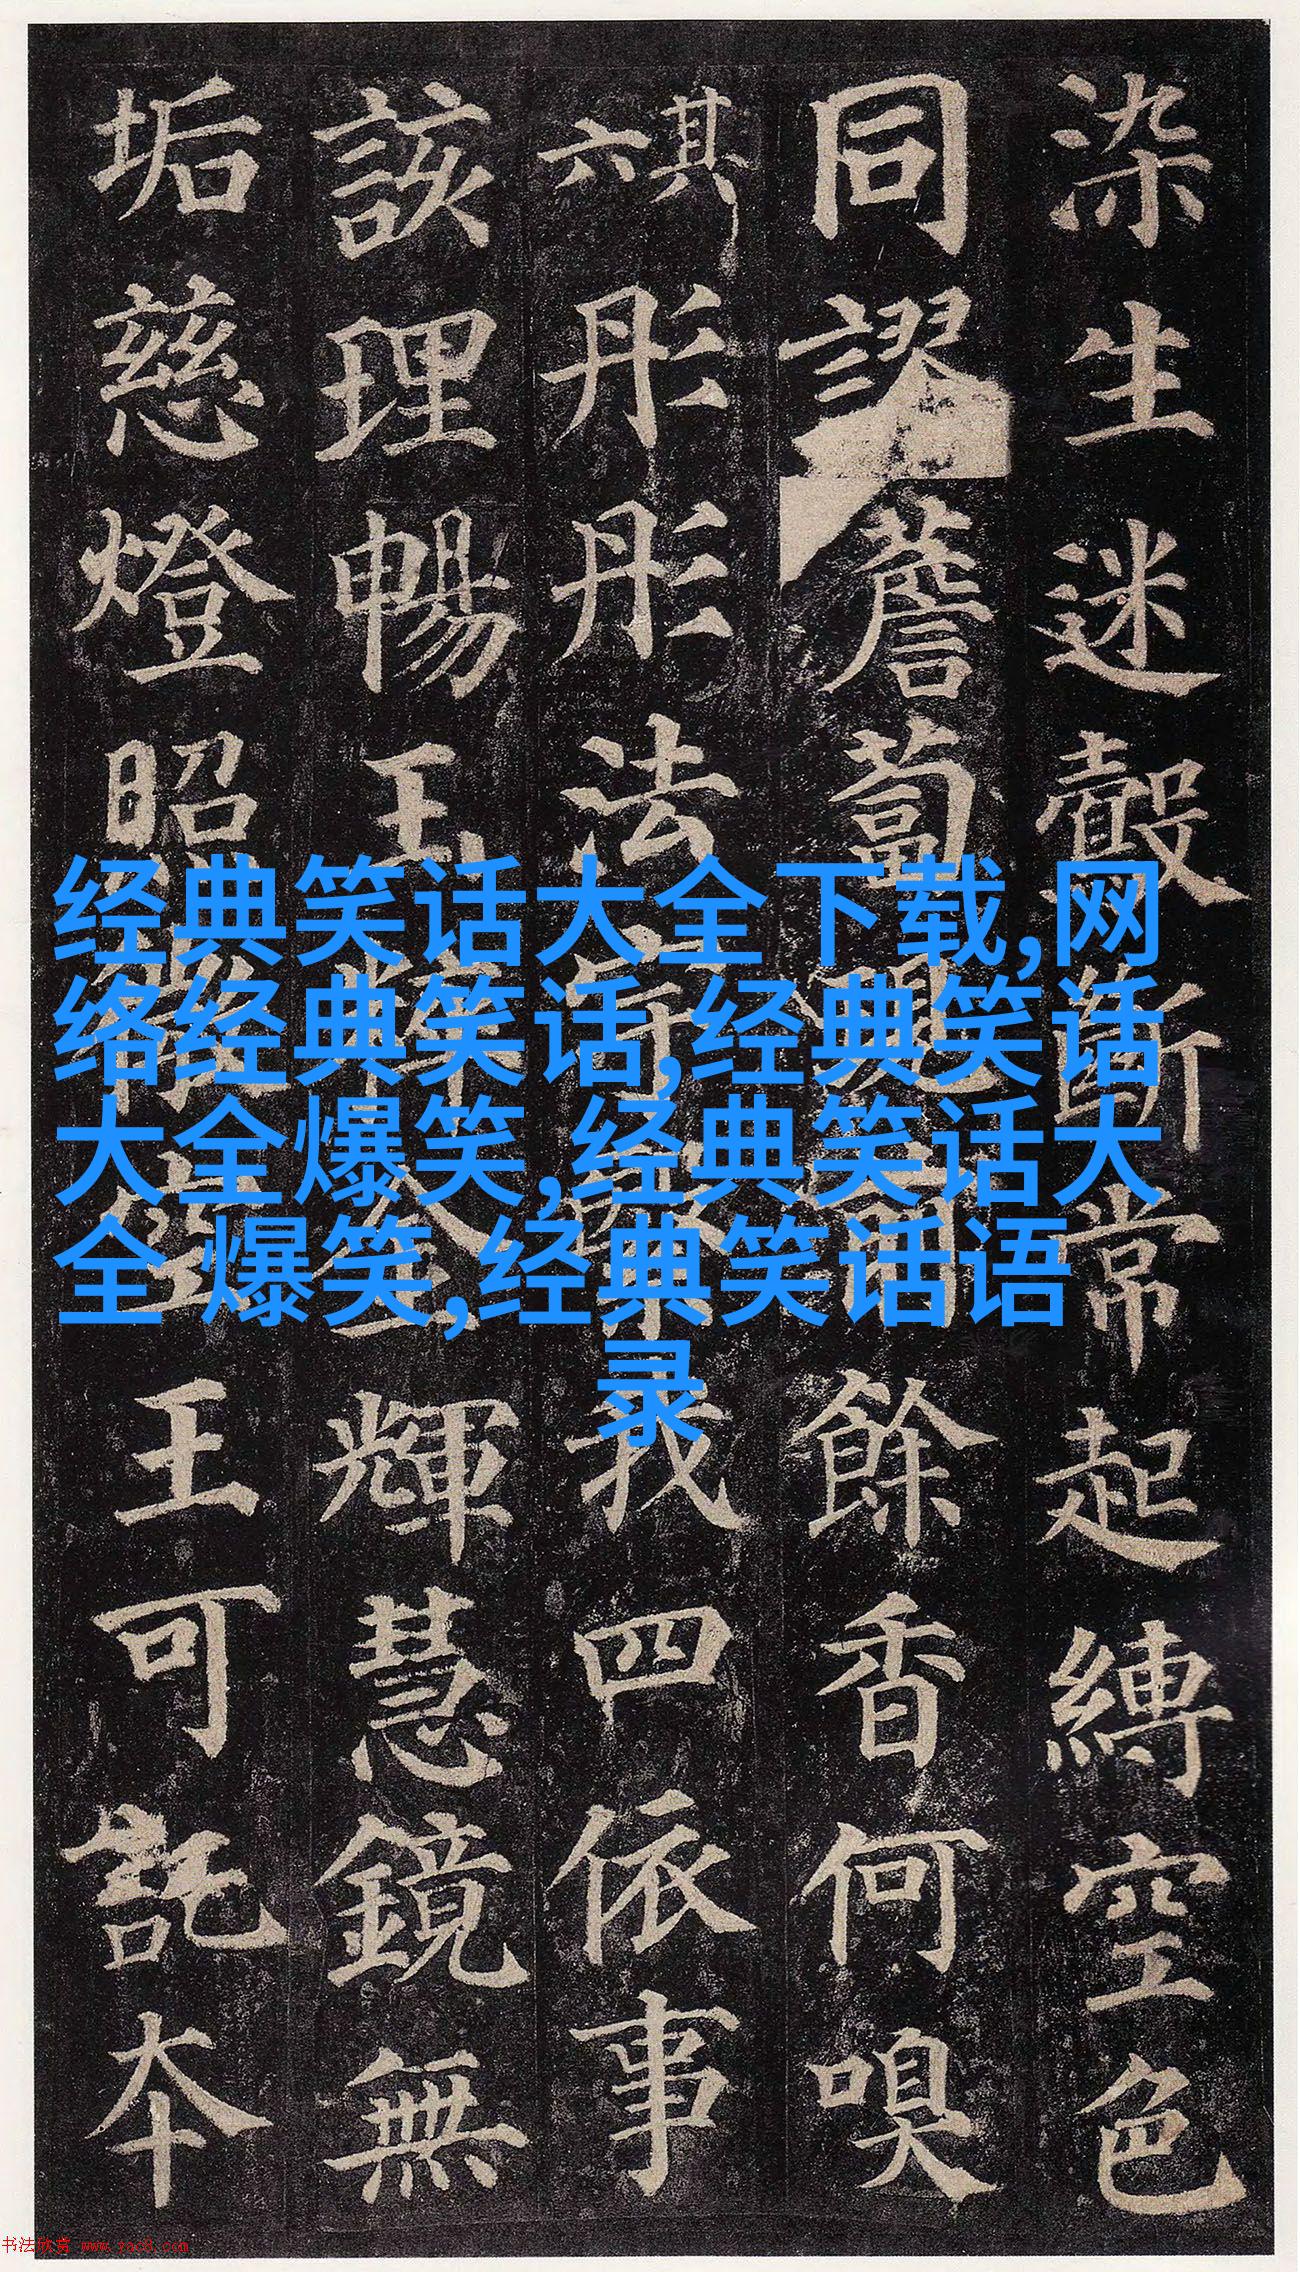 染生迷斷常起縛空色
同謬薝蔔餘香何嗅
其六彤彤法我四依事
該理暢玉粹金輝慧鏡無
垢慈燈昭王可託本
经典笑话大全下载,网
络经典笑话,经典笑话
大全爆笑,经典笑话大
全 爆笑,经典笑话语
录
书法欣赏 www.yac8.com